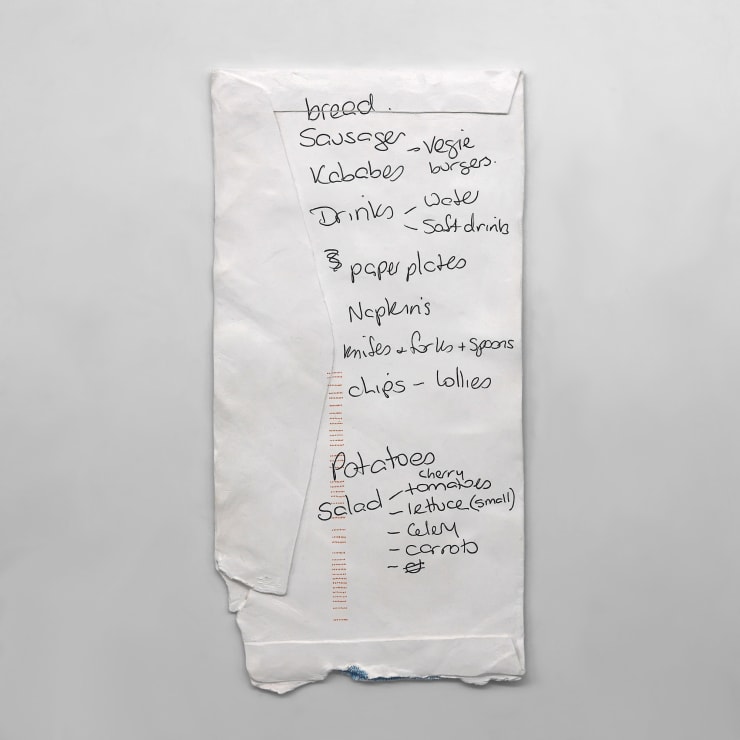 bread.
Sausages - Vegie
burgers.
Kababes
Drinks - Water
- Soft drinks
paper plates
Napkins
knives + forks + spoons
chips - Lollies
Potatoes
cherry
Salad - tomatoes
- lettuce (small)
- Celery
- carrots
-